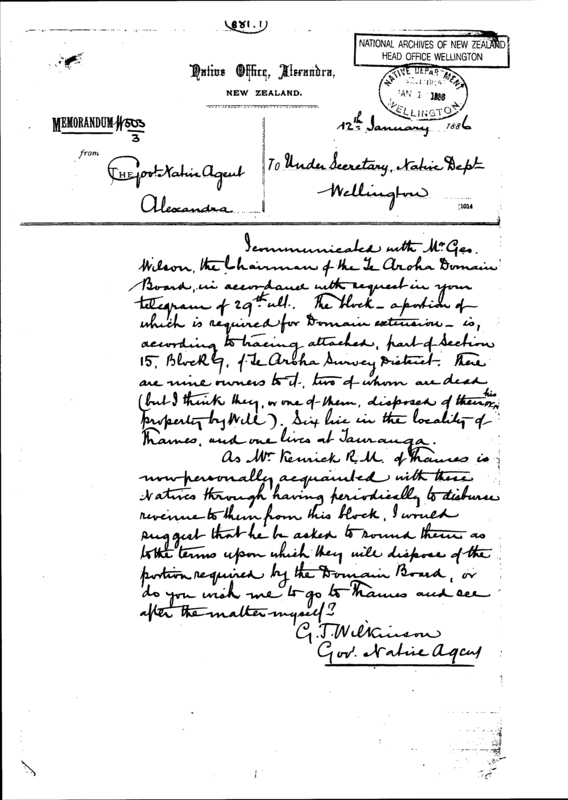 (881.1)
NATIONAL ARCHIVES OF NEW ZEALAND
HEAD OFFICE WELLINGTON
Native Office, Alexandra,
NEW ZEALAND.
NATIVE DEPARTMENT
JAN 1 1886
WELLINGTON
MEMORANDUM
3
12th January 1886
from
THE Govt Native Agent
Alexandra
To Under Secretary, Native Dept
Wellington
I communicated with Mr Geo.
Wilson, the Chairman of the Te Aroha Domain
Board, in accordance with request in your
telegram of 29th ult. The block – a portion of
which is required for Domain extension – is,
according to tracing attached, part of Section
15, Block 9, of Te Aroha Survey District. There
are nine owners to it, two of whom are dead
(but I think they, or one of them, disposed of their
property by Will). Six live in the locality of
Thames, and one lives at Tauranga.
As Mr Kenrick R.M. of Thames is
now personally acquainted with these
Natives through having periodically to disburse
revenue to them from this block, I would
suggest that he be asked to sound them as
to the terms upon which they will dispose of the
portion required by the Domain Board, or
do you wish me to go to Thames and see
after the matter myself?
G. T. Wilkinson
Gov. Native Agent